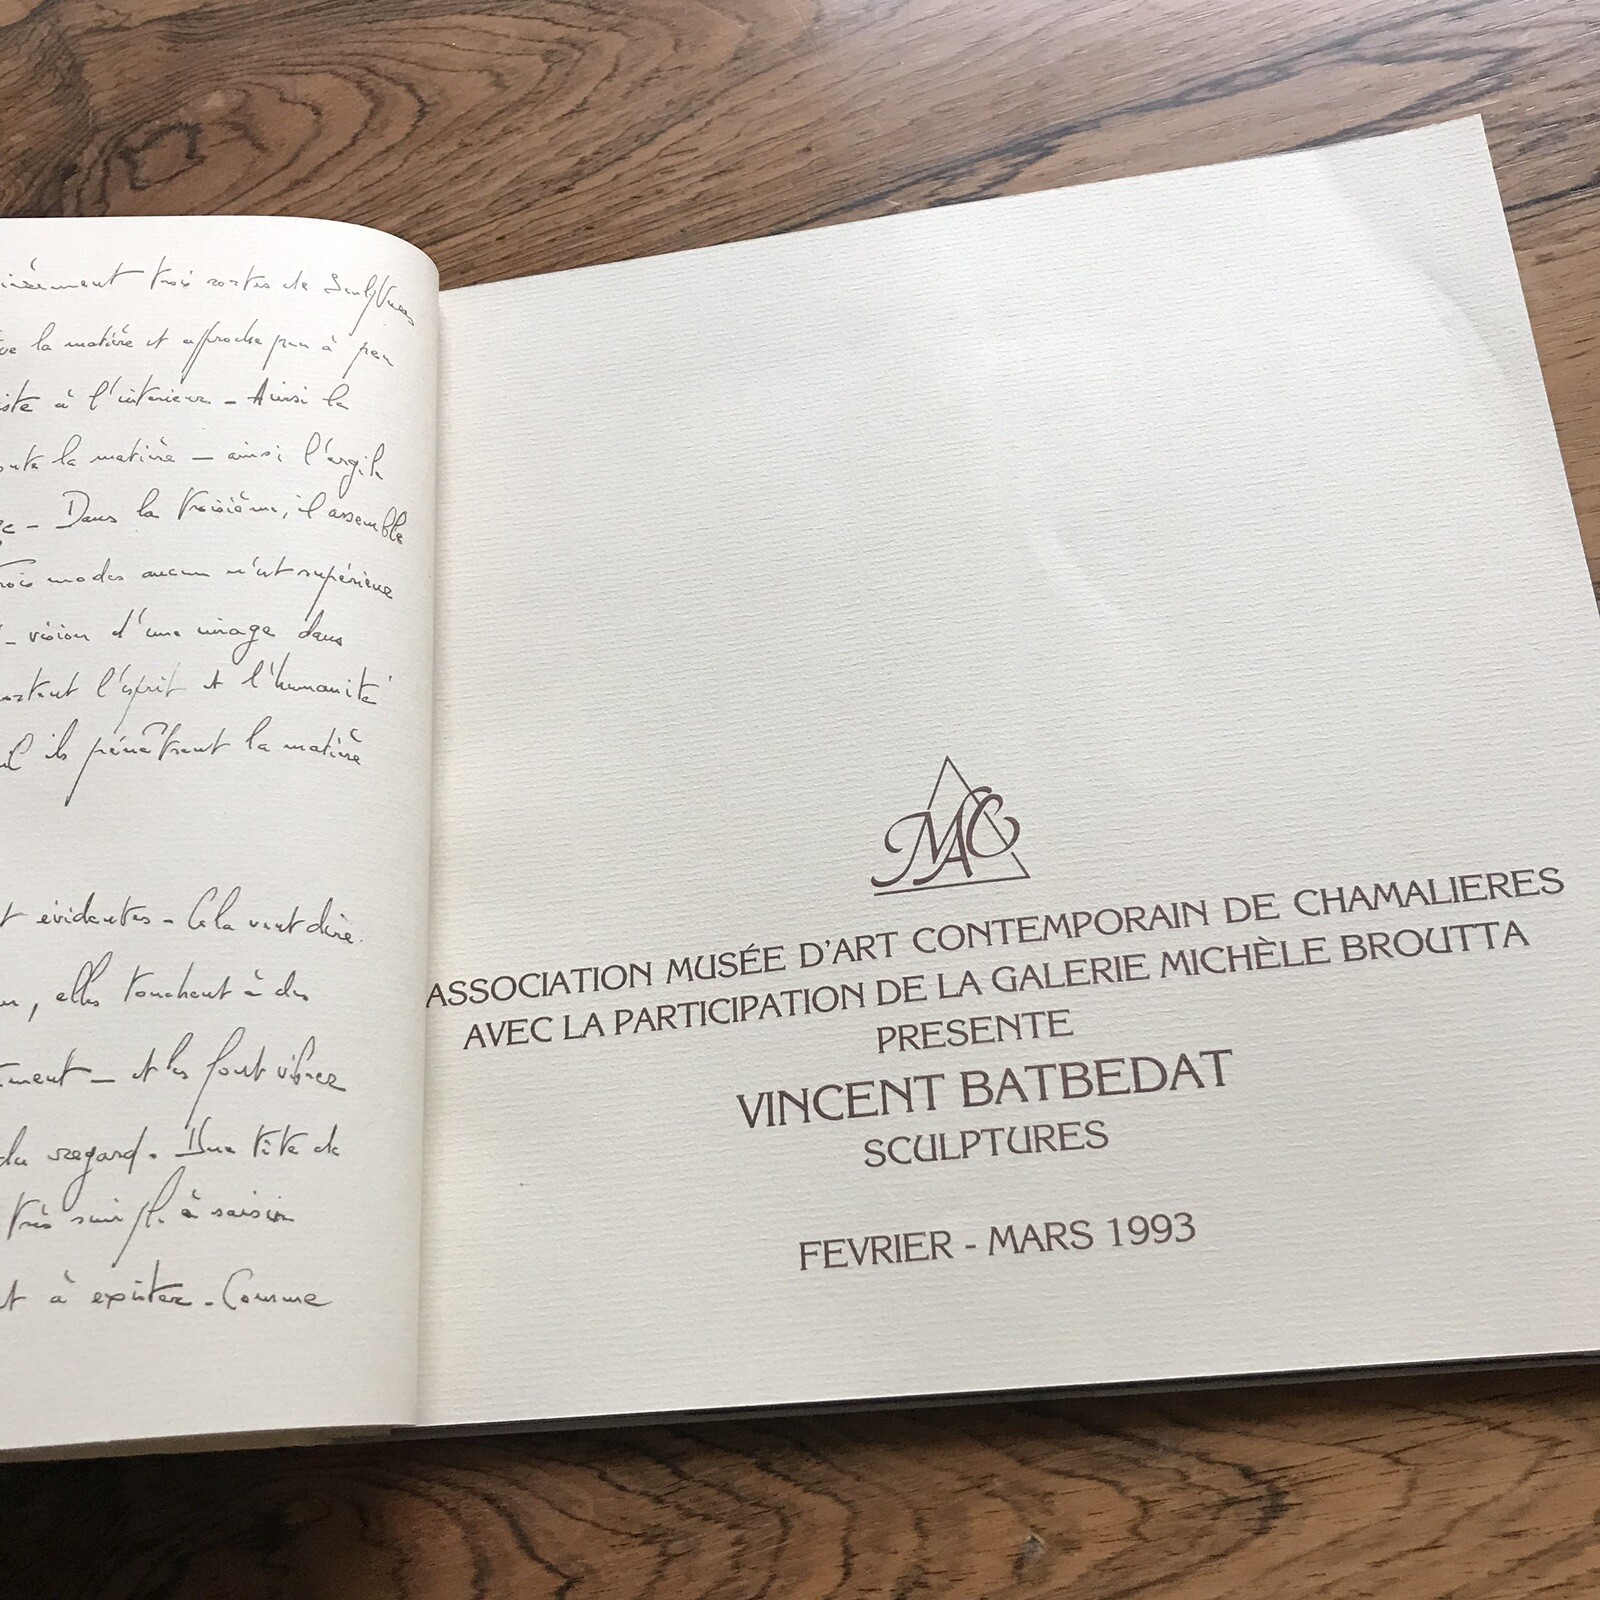 trois sortes de Sculptures
la matière et approche peu à peu
à l'intérieur - Ainsi la
la matière - ainsi l'argile
- Dans la troisième, il assemble
modes aucun n'est supérieur
- vision d'une image dans
l'esprit et l'humanité
ils pénêtrent la matière
évidentes - Cela veut dire
, elles touchent à des
- et les font vibrer
du regard. Une tête de
très simple à saisir
à exister. Comme
MAC
ASSOCIATION MUSÉE D'ART CONTEMPORAIN DE CHAMALIERES
AVEC LA PARTICIPATION DE LA GALERIE MICHÈLE BROUTTA
PRESENTE
VINCENT BATBEDAT
SCULPTURES
FEVRIER - MARS 1993